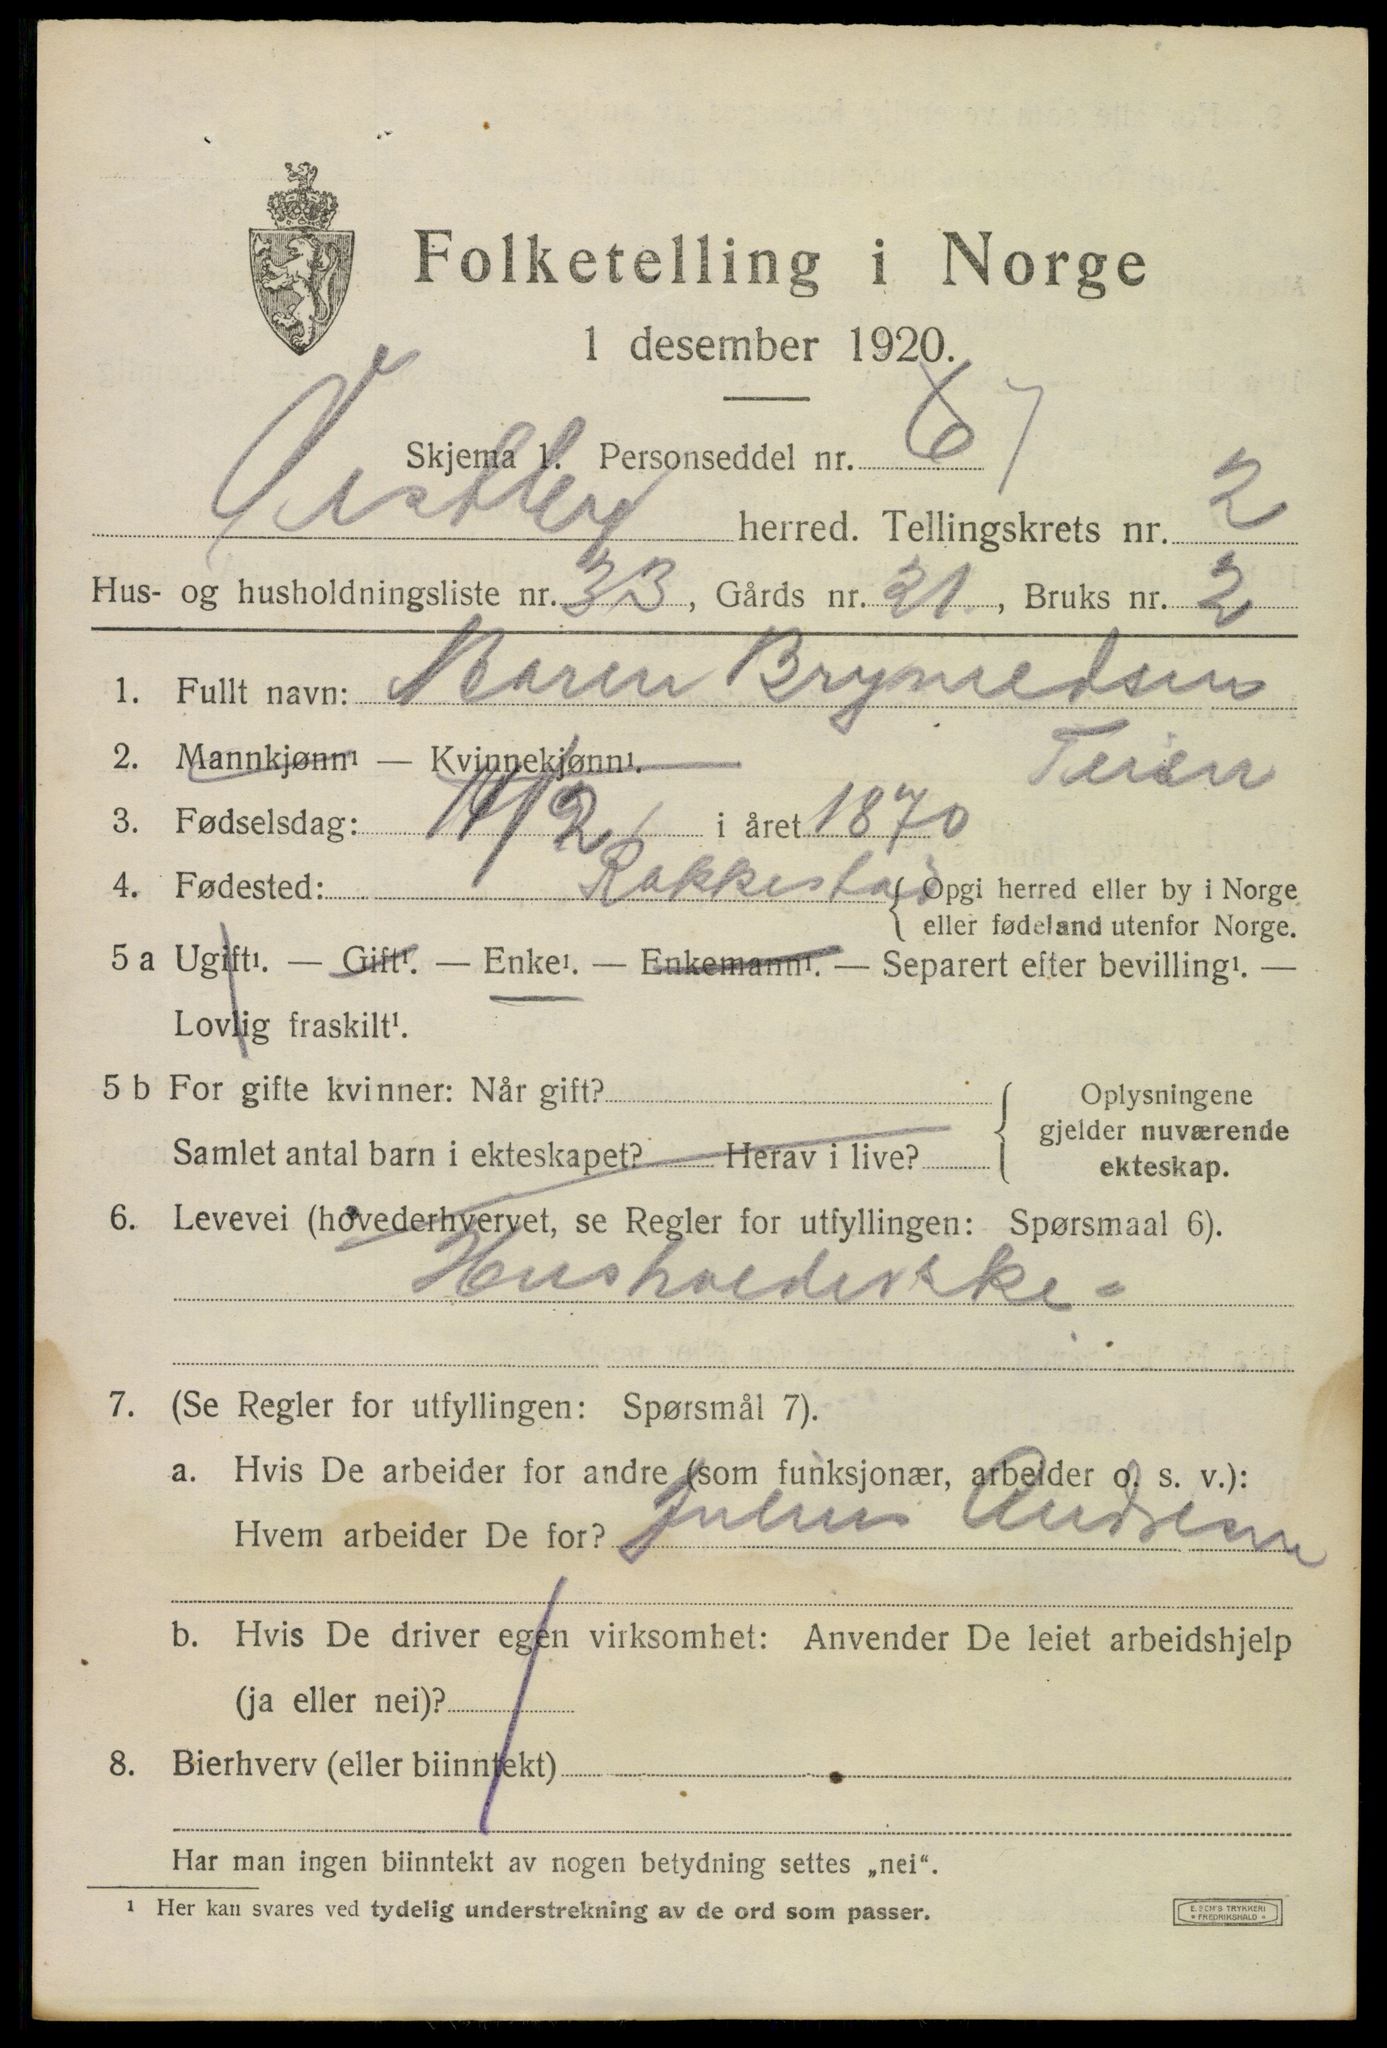 Folketelling i Norge
1 desember 1920.
Skjema 1. Personseddel nr. 67
Vestby herred. Tellingskrets nr. 2
Hus- og husholdningsliste nr. 33, Gårds nr. 21, Bruks nr. 2
1. Fullt navn: Maren Brynildsen
2. Mannkjønn¹ — Kvinnekjønn¹.
3. Fødselsdag: 11/2 i året 1870
4. Fødested: Rakkestad { Opgi herred eller by i Norge
eller fødeland utenfor Norge.
5 a Ugift¹. — Gift¹. — Enke¹. — Enkemann¹. — Separert efter bevilling¹. —
Lovlig fraskilt¹.
5 b For gifte kvinner: Når gift? { Oplysningene
gjelder nuværende
Samlet antal barn i ekteskapet? Herav i live? ekteskap.
6. Levevei (hovederhvervet, se Regler for utfyllingen: Spørsmaal 6).
Husholderske
7. (Se Regler for utfyllingen: Spørsmål 7).
a. Hvis De arbeider for andre (som funksjonær, arbeider o. s. v.):
Hvem arbeider De for? Julius Andresen
b. Hvis De driver egen virksomhet: Anvender De leiet arbeidshjelp
(ja eller nei)?
8. Bierhverv (eller biinntekt)
Har man ingen biinntekt av nogen betydning settes „nei“.
¹ Her kan svares ved tydelig understrekning av de ord som passer.
E. SEM'S TRYKKERI
FREDRIKSHALD